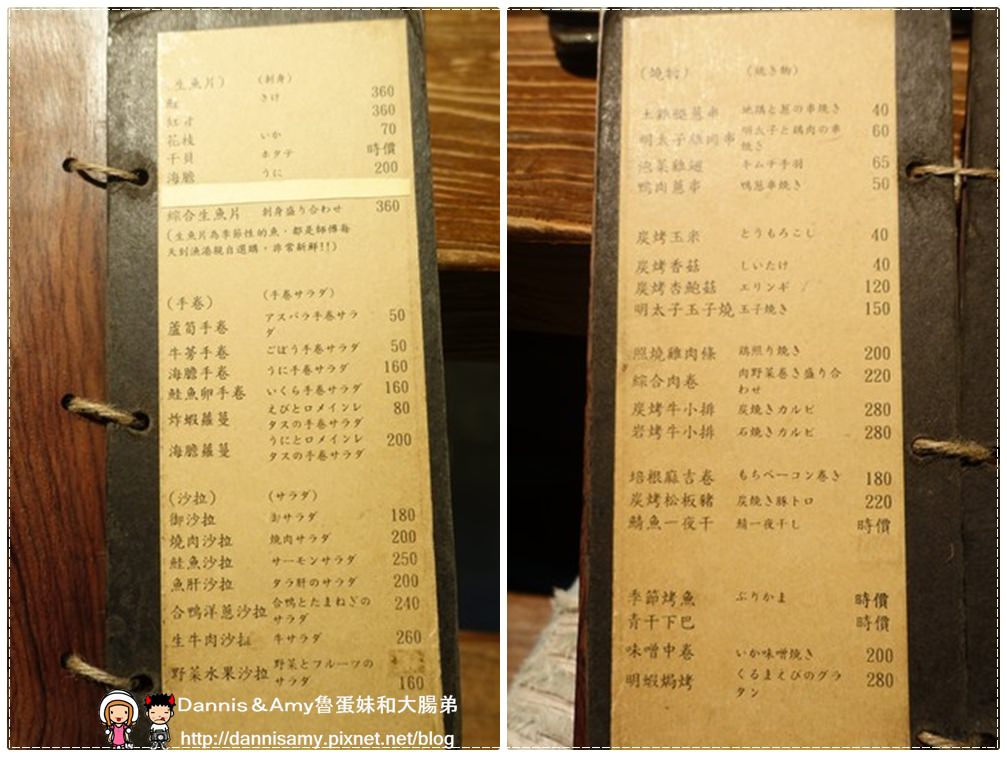 生魚片） （刺身）
鮭 さけ 360
紅才 360
花枝 いか 70
干貝 ホタテ 時價
海膽 うに 200
綜合生魚片 刺身盛り合わせ 360
（生魚片為季節性的魚，都是師傅每
天到漁港親自選購，非常新鮮!!）
（手卷） （手巻サラダ）
蘆筍手卷 アスパラ手巻サラ 50
ダ
牛蒡手卷 ごぼう手巻サラダ 50
海膽手卷 うに手巻サラダ 160
鮭魚卵手卷 いくら手巻サラダ 160
炸蝦蘿蔓 えびとロメインレ 80
タスの手巻サラダ
海膽蘿蔓 うにとロメインレ 200
タスの手巻サラダ
（沙拉） （サラダ）
御沙拉 御サラダ 180
燒肉沙拉 焼肉サラダ 200
鮭魚沙拉 サーモンサラダ 250
魚肝沙拉 タラ肝のサラダ 200
合鴨洋蔥沙拉 合鴨とたまねぎの 240
サラダ
生牛肉沙拉 牛サラダ 260
野菜水果沙拉 野菜とフルーツの
サラダ 160
Dannis＆Amy魯蛋妹和大腸弟
http://dannisamy.pixnet.net/blog
（燒物） （焼き物）
土雞腿蔥串 地鶏と葱の串焼き 40
明太子雞肉串 明太子と鶏肉の串 60
焼き
泡菜雞翅 キムチ手羽 65
鴨肉蔥串 鴨葱串焼き 50
炭烤玉米 とうもろこし 40
炭烤香菇 しいたけ 40
炭烤杏鮑菇 エリンギ 120
明太子玉子燒 玉子焼き 150
照燒雞肉條 鶏照り焼き 200
綜合肉卷 肉野菜巻き盛り合 220
わせ
炭烤牛小排 炭焼きカルビ 280
岩烤牛小排 石焼きカルビ 280
培根麻吉卷 もちベーコン巻き 180
炭烤松板豬 炭焼き豚トロ 220
鯖魚一夜干 鯖一夜干し 時價
季節烤魚 ぶりかま 時價
青干下巴 時價
味噌中卷 いか味噌焼き 200
明蝦焗烤 くるまえびのグラ 280
タン